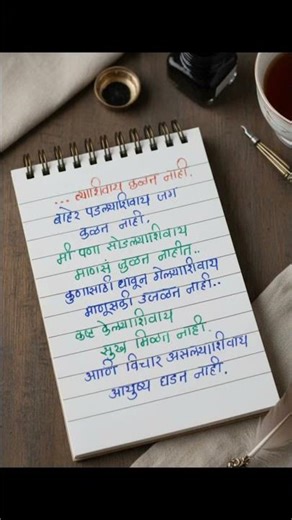 ... त्याशिवाय कळत नाही.
बाहेर पडल्याशिवाय जग
कळत नाही.
मी पणा सोडल्याशिवाय
माणसं जुळत नाहीत..
कुणासाठी धावून गेल्याशिवाय
माणूसकी उजळत नाही..
कष्ट केल्याशिवाय
सुख मिळत नाही.
आणि विचार असल्याशिवाय
आयुष्य घडत नाही.